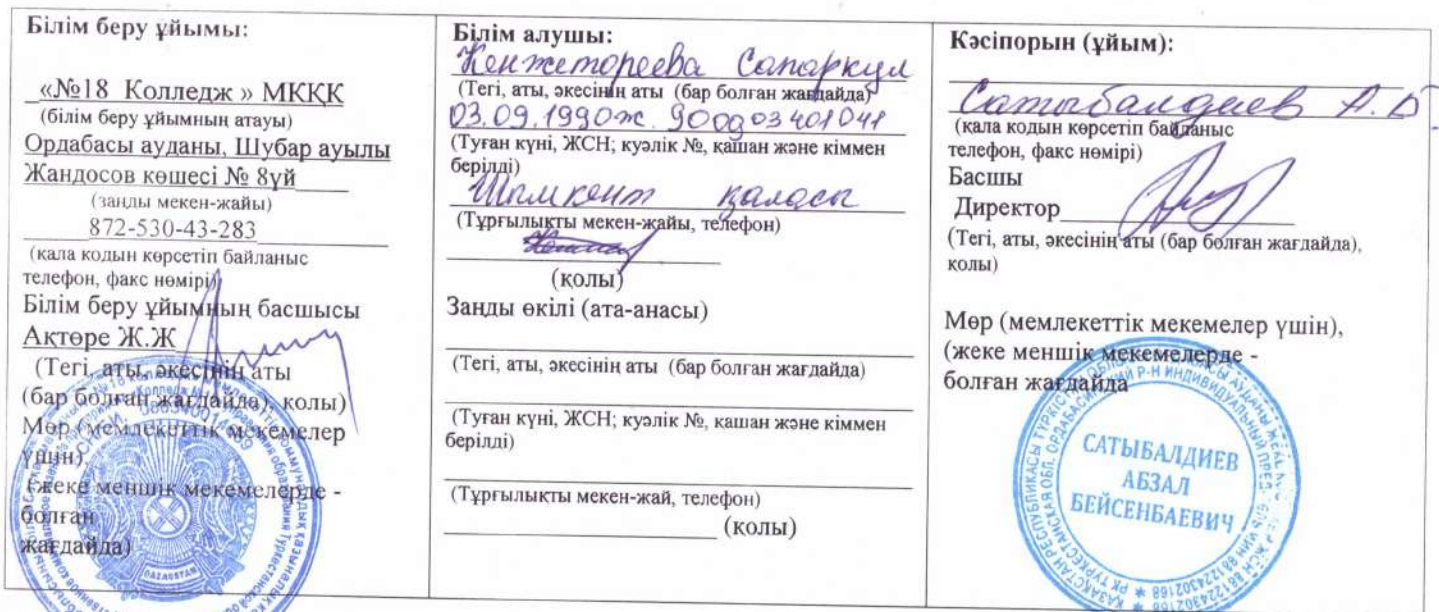 Білім беру ұйымы:
«№18 Колледж » МКҚК
(білім беру ұйымның атауы)
Ордабасы ауданы, Шубар ауылы
Жандосов көшесі № 8үй
(заңды мекен-жайы)
872-530-43-283
(қала кодын көрсетіп байланыс
телефон, факс нөмірі)
Білім беру ұйымның басшысы
Ақтөре Ж.Ж
(Тегі, аты, әкесінің аты
(бар болған жағдайда), қолы)
Мөр (мемлекеттік мекемелер
үшін),
(жеке меншік мекемелерде -
болған
жағдайда)
QAZAQSTAN
Білім алушы:
Кенжетореева Сапаркул
(Тегі, аты, әкесінің аты (бар болған жағдайда)
03.09.1990ж. 900903401041
(Туған күні, ЖСН; куәлік №, қашан және кіммен
берілді)
Шымкент қаласы
(Тұрғылықты мекен-жайы, телефон)
(қолы)
Заңды өкілі (ата-анасы)
(Тегі, аты, әкесінің аты (бар болған жағдайда)
(Туған күні, ЖСН; куәлік №, қашан және кіммен
берілді)
(Тұрғылықты мекен-жай, телефон)
(қолы)
Кәсіпорын (ұйым):
Сатыбалдиев А.Б
(қала кодын көрсетіп байланыс
телефон, факс нөмірі)
Басшы
Директор
(Тегі, аты, әкесінің аты (бар болған жағдайда),
қолы)
Мөр (мемлекеттік мекемелер үшін),
(жеке меншік мекемелерде -
болған жағдайда
САТЫБАЛДИЕВ
АБЗАЛ
БЕЙСЕНБАЕВИЧ